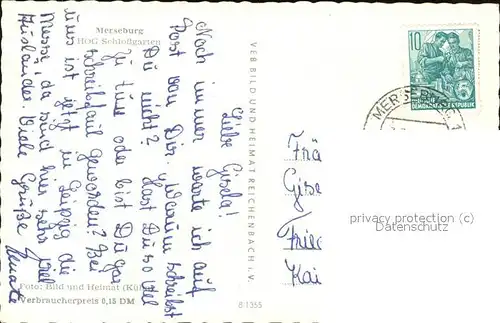 Merseburg
HOG Schloßgarten
Liebe Gisela!
Noch immer warte ich auf
Post von Dir. Warum schreibst
Du nicht? Hast Du so viel
zu tun oder bist Du gar
schreibfaul geworden? Bei
uns ist jetzt in Leipzig die
Messe, da sind hier sehr viel
Ausländer. Viele Grüße
Renate
Foto: Bild und Heimat
Verbraucherpreis 0,15 DM
VEB BILD UND HEIMAT REICHENBACH i. V.
B 1355
10
5
DEMOKRATISCHE REPUBLIK
MERSEBURG 1
Frä
Gise
Frie
Kai
privacy protection (c)
Datenschutz